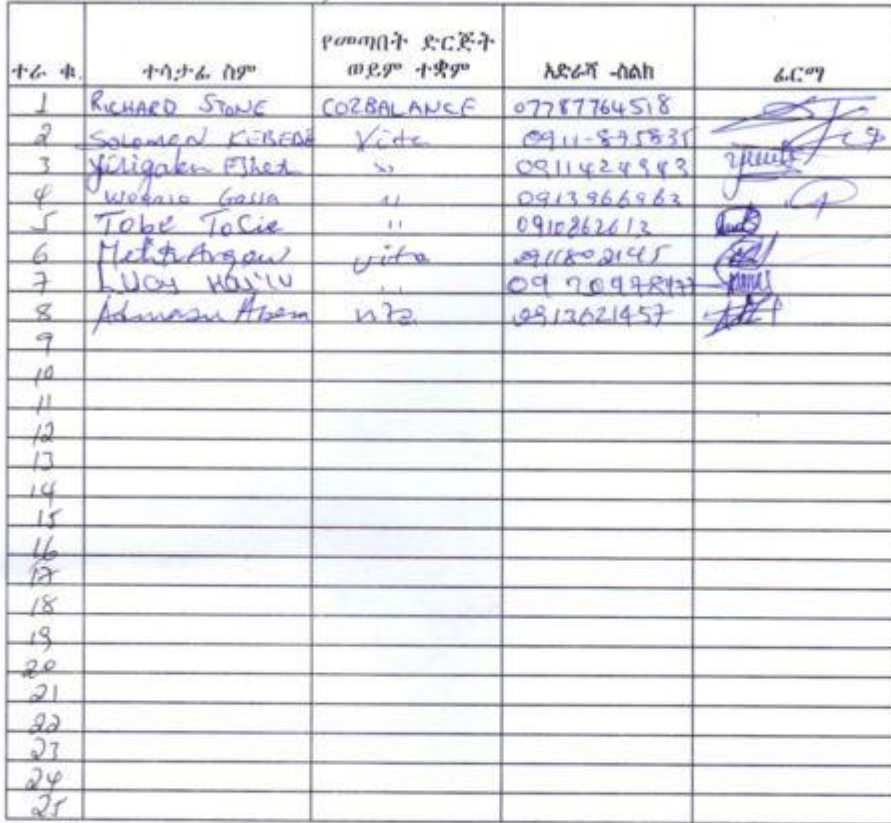 ተራ ቁ. ተሳታፊ ስም የመጣበት ድርጅት ወይም ተቋም አድራሻ -ስልክ ፊርማ
1 RICHARD STONE CO2BALANCE 07787764518
2 SOLOMON KEBEDE Vita 0911-895835
3 Yirigalem Eshet " 0911424943
4 Gassa " 0913966963
5 Tobe Tocie " 0910262612
6 vita 0911802145
7 Lucy Hailu " 0920998477
8 Admasu Abera 0913621457
9
10
11
12
13
14
15
16
17
18
19
20
21
22
23
24
25